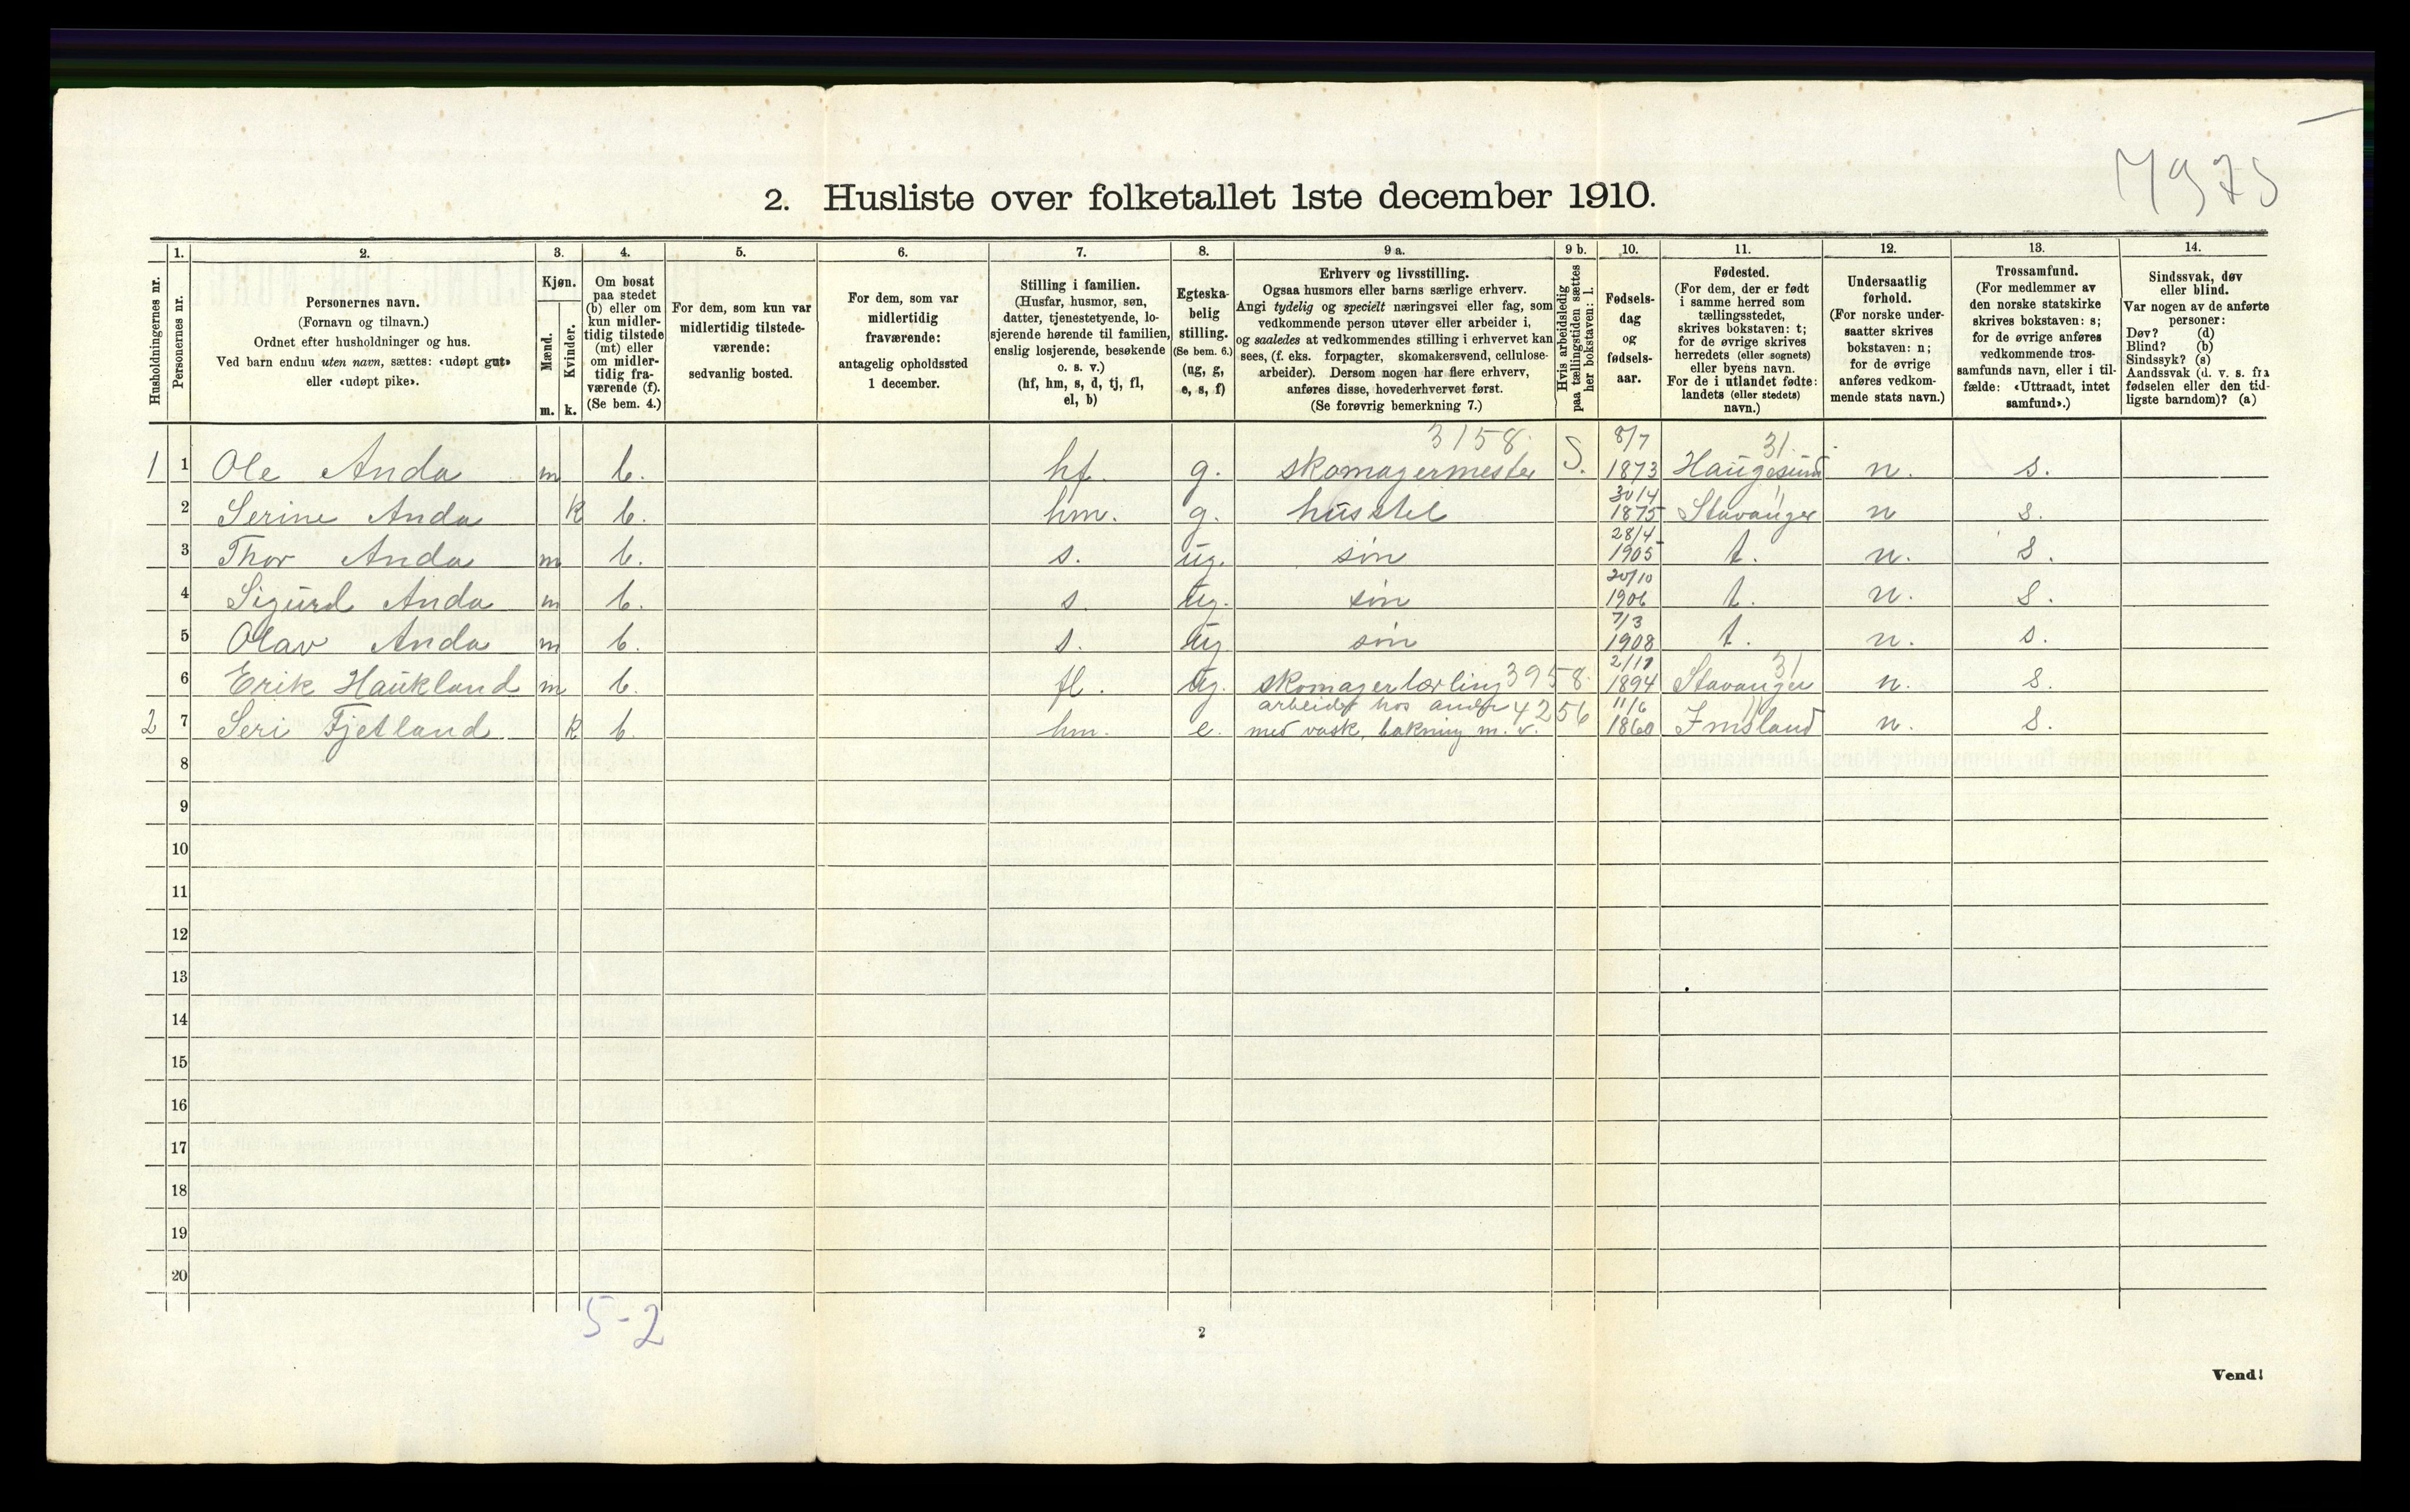 7975
2. Husliste over folketallet 1ste december 1910.
Husholdningernes nr.
1. Personernes nr.
2. Personernes navn.
(Fornavn og tilnavn.)
Ordnet efter husholdninger og hus.
Ved barn endnu uten navn, sættes: «udøpt gut»
eller «udøpt pike».
3. Kjøn.
Mænd. m.
Kvinder. k.
4. Om bosat
paa stedet
(b) eller om
kun midler-
tidig tilstede
(mt) eller
om midler-
tidig fra-
værende (f).
(Se bem. 4.)
5. For dem, som kun var
midlertidig tilstede-
værende:
sedvanlig bosted.
6. For dem, som var
midlertidig
fraværende:
antagelig opholdssted
1 december.
7. Stilling i familien.
(Husfar, husmor, søn,
datter, tjenestetyende, lo-
sjerende hørende til familien,
enslig losjerende, besøkende
o. s. v.)
(hf, hm, s, d, tj, fl,
el, b)
8. Egteska-
belig
stilling.
(Se bem. 6.)
(ug, g,
e, s, f)
9 a. Erhverv og livsstilling.
Ogsaa husmors eller barns særlige erhverv.
Angi tydelig og specielt næringsvei eller fag, som
vedkommende person utøver eller arbeider i,
og saaledes at vedkommendes stilling i erhvervet kan
sees, (f. eks. forpagter, skomakersvend, cellulose-
arbeider). Dersom nogen har flere erhverv,
anføres disse, hovederhvervet først.
(Se forøvrig bemerkning 7.)
9 b. Hvis arbeidsledig
paa tællingstiden sættes
her bokstaven: l.
10. Fødsels-
dag
og
fødsels-
aar.
11. Fødested.
(For dem, der er født
i samme herred som
tællingsstedet,
skrives bokstaven: t;
for de øvrige skrives
herredets (eller sognets)
eller byens navn.
For de i utlandet fødte:
landets (eller stedets)
navn.)
12. Undersaatlig
forhold.
(For norske under-
saatter skrives
bokstaven: n;
for de øvrige
anføres vedkom-
mende stats navn.)
13. Trossamfund.
(For medlemmer av
den norske statskirke
skrives bokstaven: s;
for de øvrige anføres
vedkommende tros-
samfunds navn, eller i til-
fælde: «Uttraadt, intet
samfund».)
14. Sindssvak, døv
eller blind.
Var nogen av de anførte
personer:
Døv? (d)
Blind? (b)
Sindssyk? (s)
Aandssvak (d. v. s. fra
fødselen eller den tid-
ligste barndom)? (a)
3158. 8/7 31.
1 1 Ole Anda m b. hf. g. skomagermester S. 1873 Haugesund n. s.
30/4
2 Serine Anda k b. hm. g. husstel 1875 Stavanger n s.
28/4
3 Thor Anda m b. s. ug. søn 1905 t. n. s.
20/10
4 Sigurd Anda m b. s. ug. søn 1906 t. n. s.
7/3
5 Olav Anda m b. s. ug søn 1908 t. n. s.
2/11 31
6 Erik Haukland m b. fl. ug. skomagerlærling 3958. 1894 Stavanger n. s.
arbeider hos andre 4256 11/6
2 7 Seri Fjetland k b. hm. e. med vask, bakning m. v. 1860 Imsland n. s.
8
9
10
11
12
13
14
15
16
17
18
19
20
5-2
2
Vend!